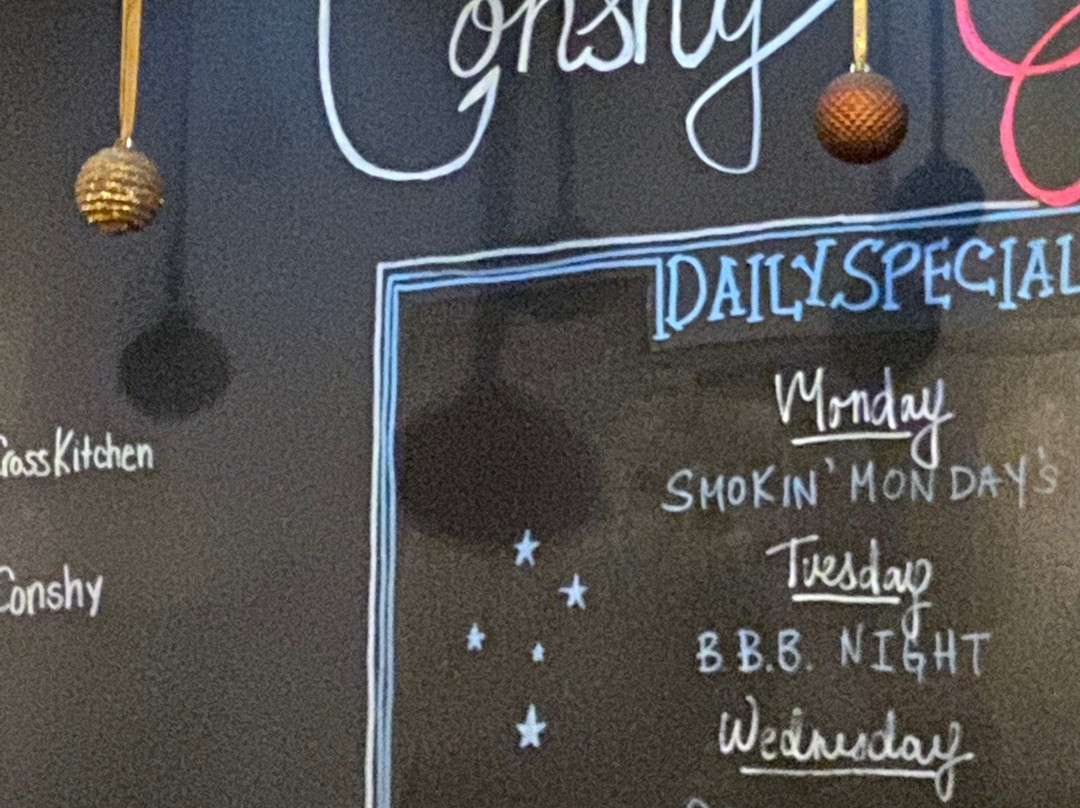 Conshy
DAILY SPECIAL
Monday
SMOKIN' MONDAY's
Tuesday
B.B.B. NIGHT
Wednesday
CrossKitchen
Conshy